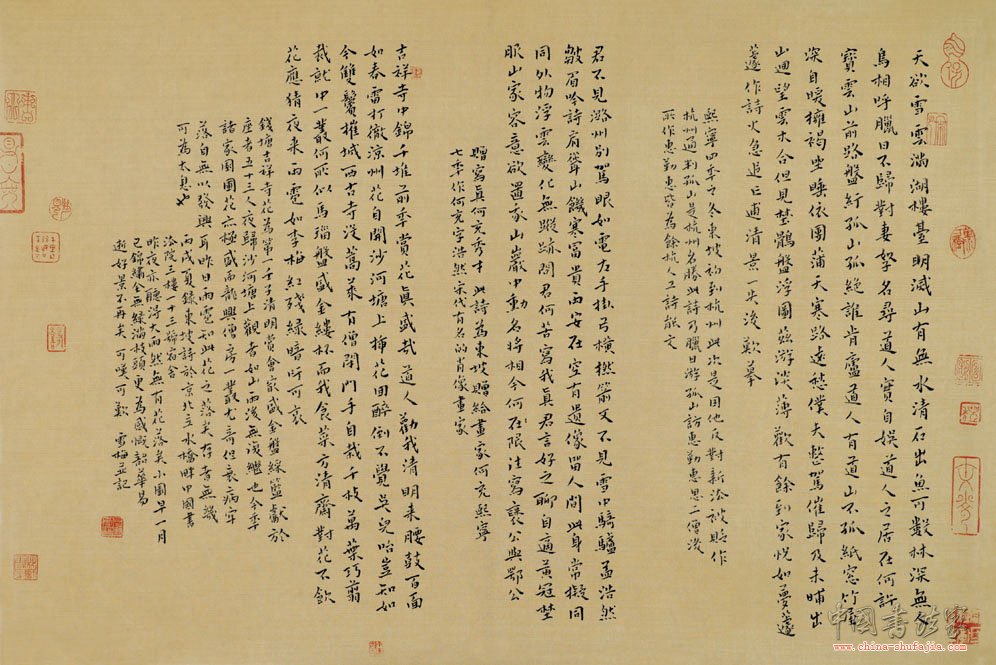 天欲雪雲滿湖樓臺明滅山有無水清石出魚可數林深無人
鳥相呼臘日不歸對妻孥名尋道人實自娛道人之居在何許
寶雲山前路盤紆孤山孤絕誰肯廬道人有道山不孤紙窗竹屋
深自暖擁褐坐睡依團蒲天寒路遠愁僕夫整駕催歸及未晡出
山迴望雲木合但見野鶻盤浮圖茲游淡薄歡有餘到家怳如夢蘧
蘧作詩火急追亡逋清景一失後難摹
熙寧四年之冬東坡初到杭州此次是因他反對新法被貶作
杭州通判孤山是杭州名勝此詩乃臘日游孤山訪惠勤惠思二僧後
所作惠勤惠思為餘杭人工詩能文
君不見潞州別駕眼如電左手掛弓橫撚箭又不見雪中騎驢孟浩然
皺眉吟詩肩聳山饑寒富貴兩安在空有遺像留人間此身常擬同
同外物浮雲變化無蹤跡問君何苦寫我真君言好之聊自適黃冠野
服山家容意欲置我山巖中勳名將相今何在限往寫褒公與鄂公
贈寫真何充秀才此詩為東坡贈給畫家何充熙寧
七年作何充字浩然宋代有名的肖像畫家
吉祥寺中錦千堆前年賞花真盛哉道人勸我清明來腰鼓百面
如春雷打徹涼州花自開沙河塘上插花回醉倒不覺吳兒咍豈知如
今雙鬢摧城西古寺沒蒿萊有僧閉門手自栽千枝萬葉巧剪
裁就中一叢何所似馬瑙盤盛金縷杯而我食菜方清齋對花不飲
花應猜夜來雨雹如李梅紅殘綠暗吁可哀
錢塘吉祥寺花為第一壬子清明賞會最盛金盤綵籃獻於
座者五十三人夜歸沙河塘上觀者如山爾後無復繼也今年
諸家園圃花亦極盛而龍興僧房一叢尤奇但衰病牢
落自無以發興耳昨日雨雹知此花之落矣存者無幾
可為太息也
丙戌夏錄東坡詩於京北立水橋畔中國書
法院三樓一十三號宿舍
昨夜亦聽得大雨然無有花落矣小園早一月
已錦繡全無綠滿枝頭更為感慨韶華易
逝好景不再矣可嘆可歎 雪梅並記
中國書法家
www.china-shufajia.com